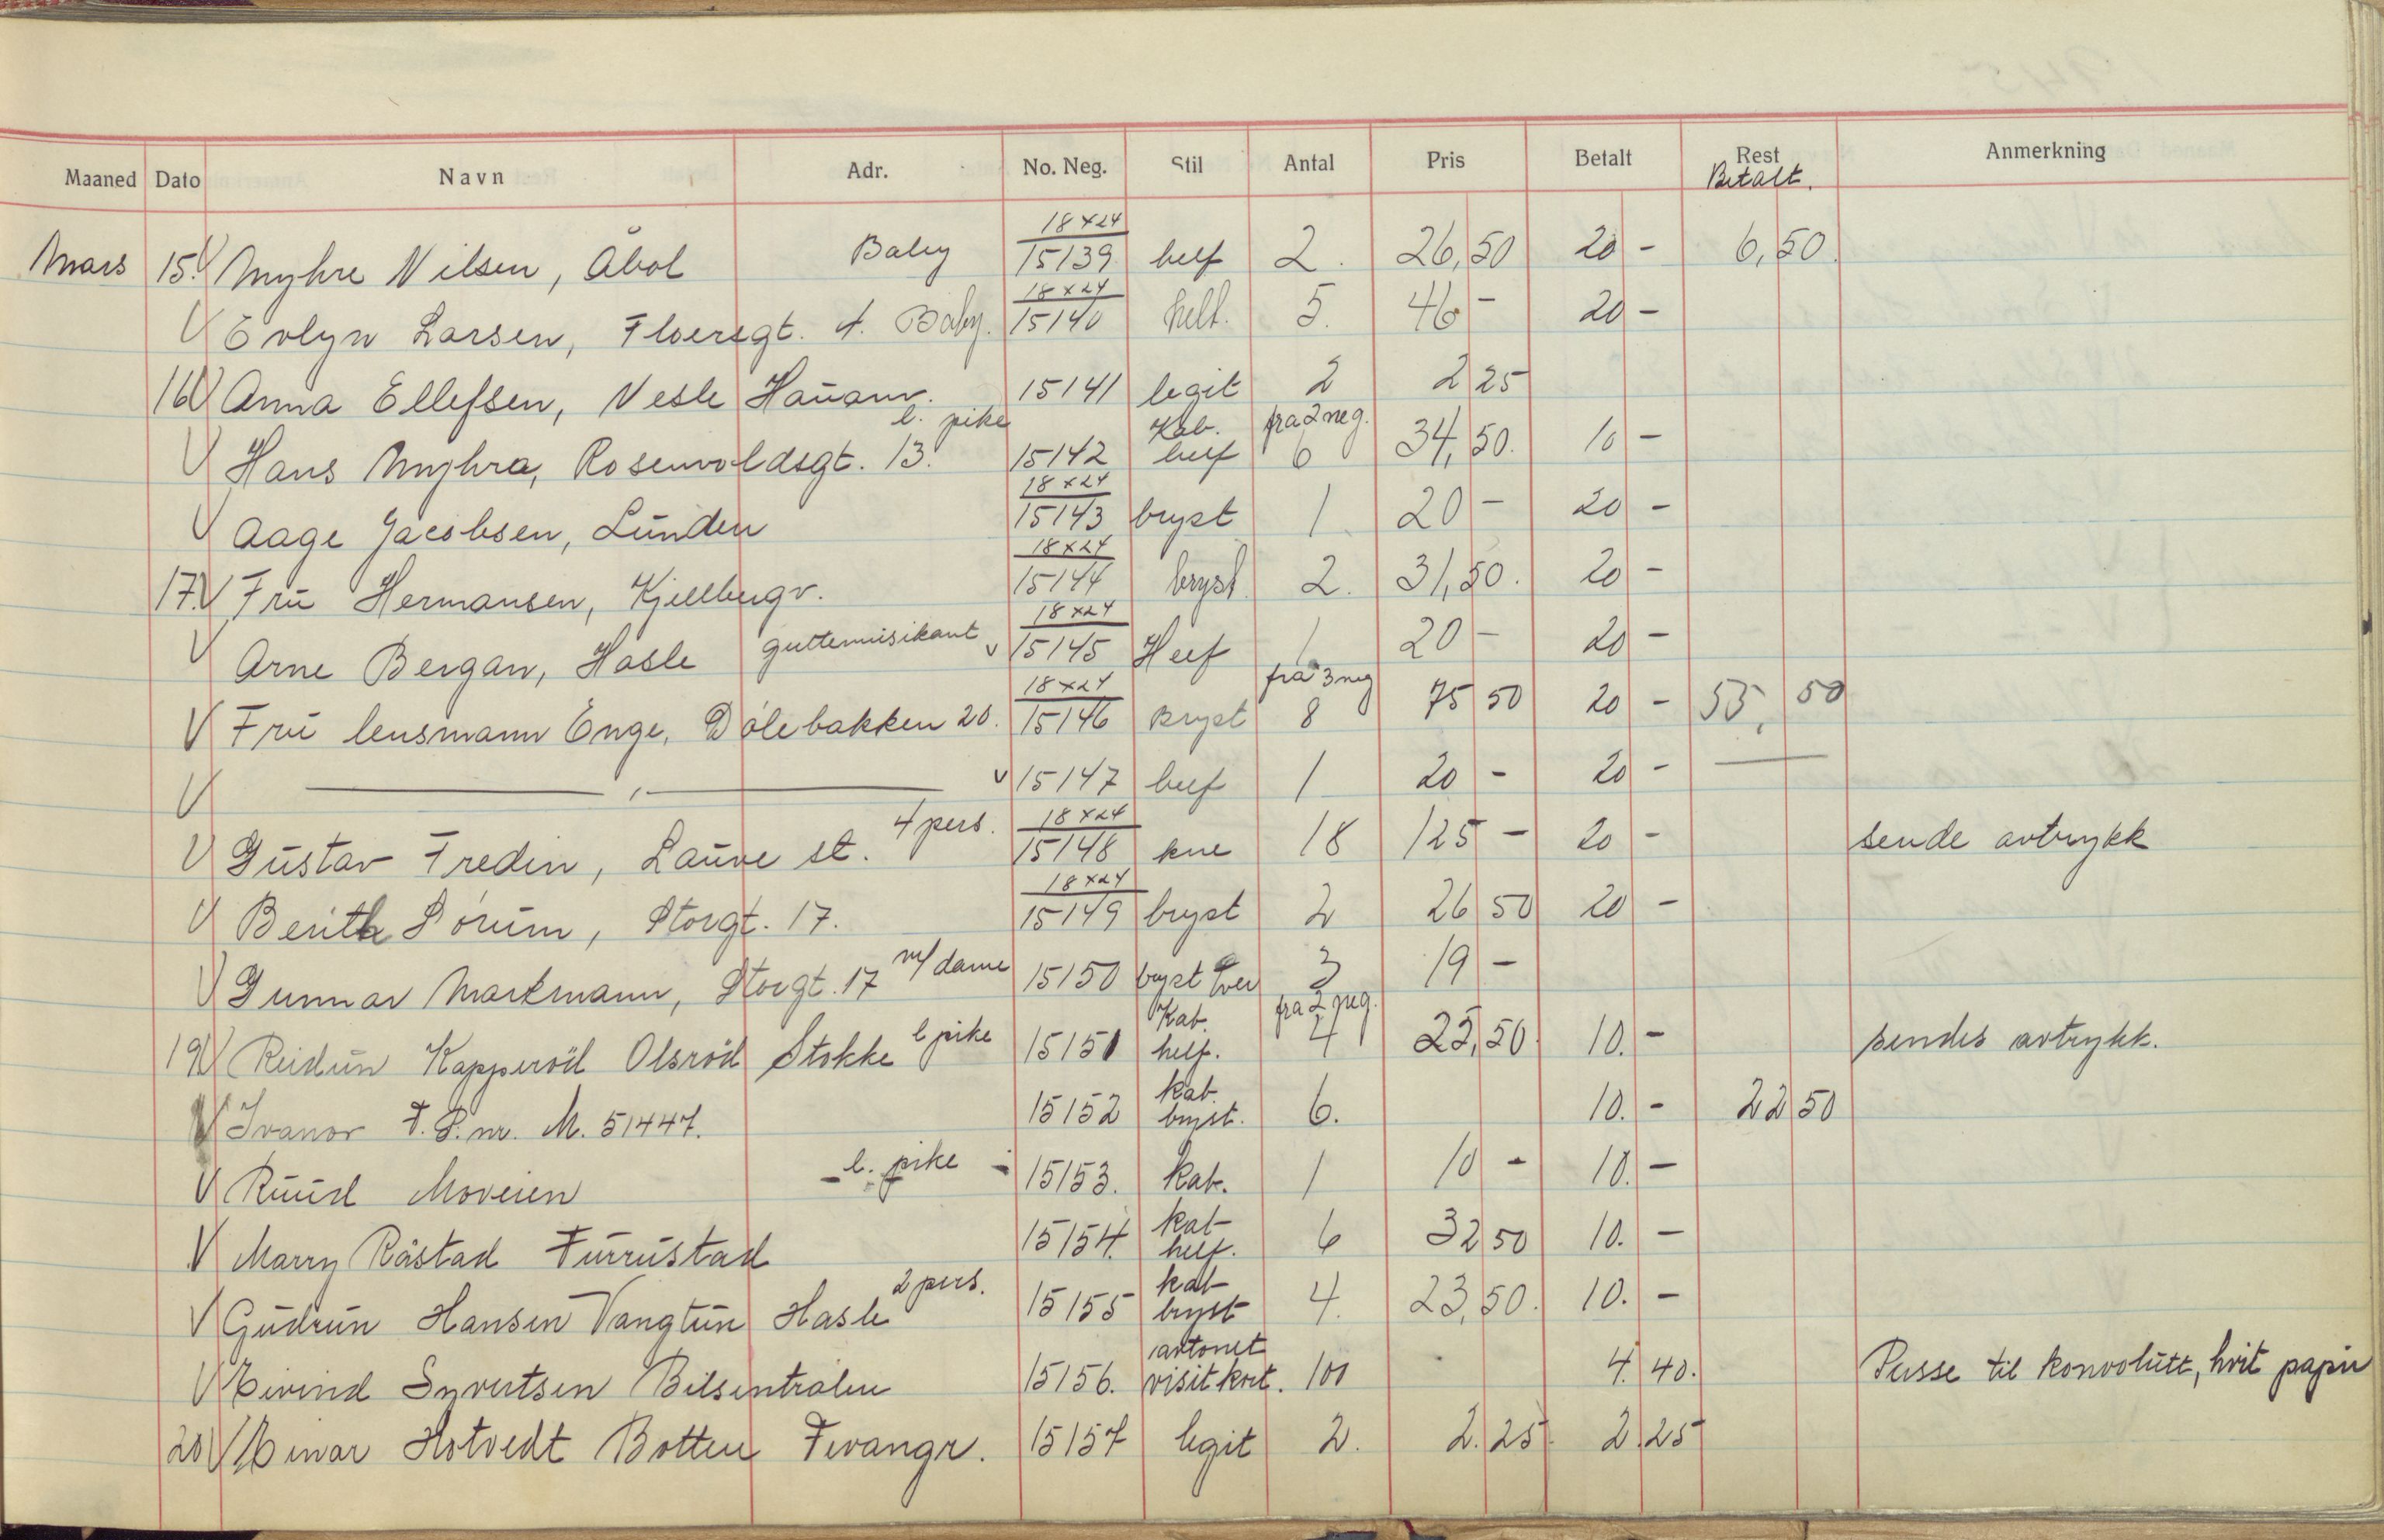 Maaned Dato Navn Adr. No. Neg. Stil Antal Pris Betalt Rest Betalt. Anmerkning
Mars 15. V Myhre Nilsen, Åbol Baby 18x24 15139 helf 2. 26,50 20 - 6,50.
V Evlyn Larsen, Floersgt. 4. Baby. 18x24 15140 helf. 5. 46 - 20 -
16 V Anna Ellefsen, Nesle Hauanv. 15141 legit 2 2 25
V Hans Myhra, Rosenvoldsgt. 13. l. pike 15142 Kab. helf fra 2 neg. 6 34,50. 10 -
V Aage Jacobsen, Lunden 18x24 15143 bryst 1 20 - 20 -
17. V Fru Hermansen, Kjellbergv. 18x24 15144 bryst 2. 31,50. 20 -
V Arne Bergan, Hasle guttemusikant v 18x24 15145 Helf 1 20 - 20 -
V Fru lensmann Enge, Dølebakken 20. 18x24 15146 Bryst fra 3 neg 8 75 50 20 - 55,50
V —— , —— v 15147 helf 1 20 - 20 - ——
V Gustav Fredin, Lauve st. 4 pers. 18x24 15148 kne 18 125 - 20 - sende avtrykk
V Berith Sørum, Storgt. 17. 18x24 15149 bryst 2 26 50 20 -
V Gunnar Markmann, Storgt. 17 m/ dame 15150 bryst 3 19 -
19 V Reidun Kapperöd Olsröd Stokke l pike 15151 Kab. helf. fra 2 neg. 4 25,50. 10. - sendes avtrykk.
V Ivanor F.P. nr. M. 51447. 15152 kab. bryst. 6. 10. - 22 50
V Ruud Moveien l. pike 15153. kab. 1 10 - 10. -
V Marry Råstad Furrustad 15154. kab helf. 6 32 50 10. -
V Gudrun Hansen Vangtun Hasle 2 pers. 15155 kab bryst 4. 23,50. 10. -
V Eivind Syvertsen Bilsentralen 15156. avtonet visitkort. 100 4. 40. Passe til konvolutt, hvit papir
20 V Einar Hotvedt Botten Tevangr. 15157 legit 2. 2.25. 2.25